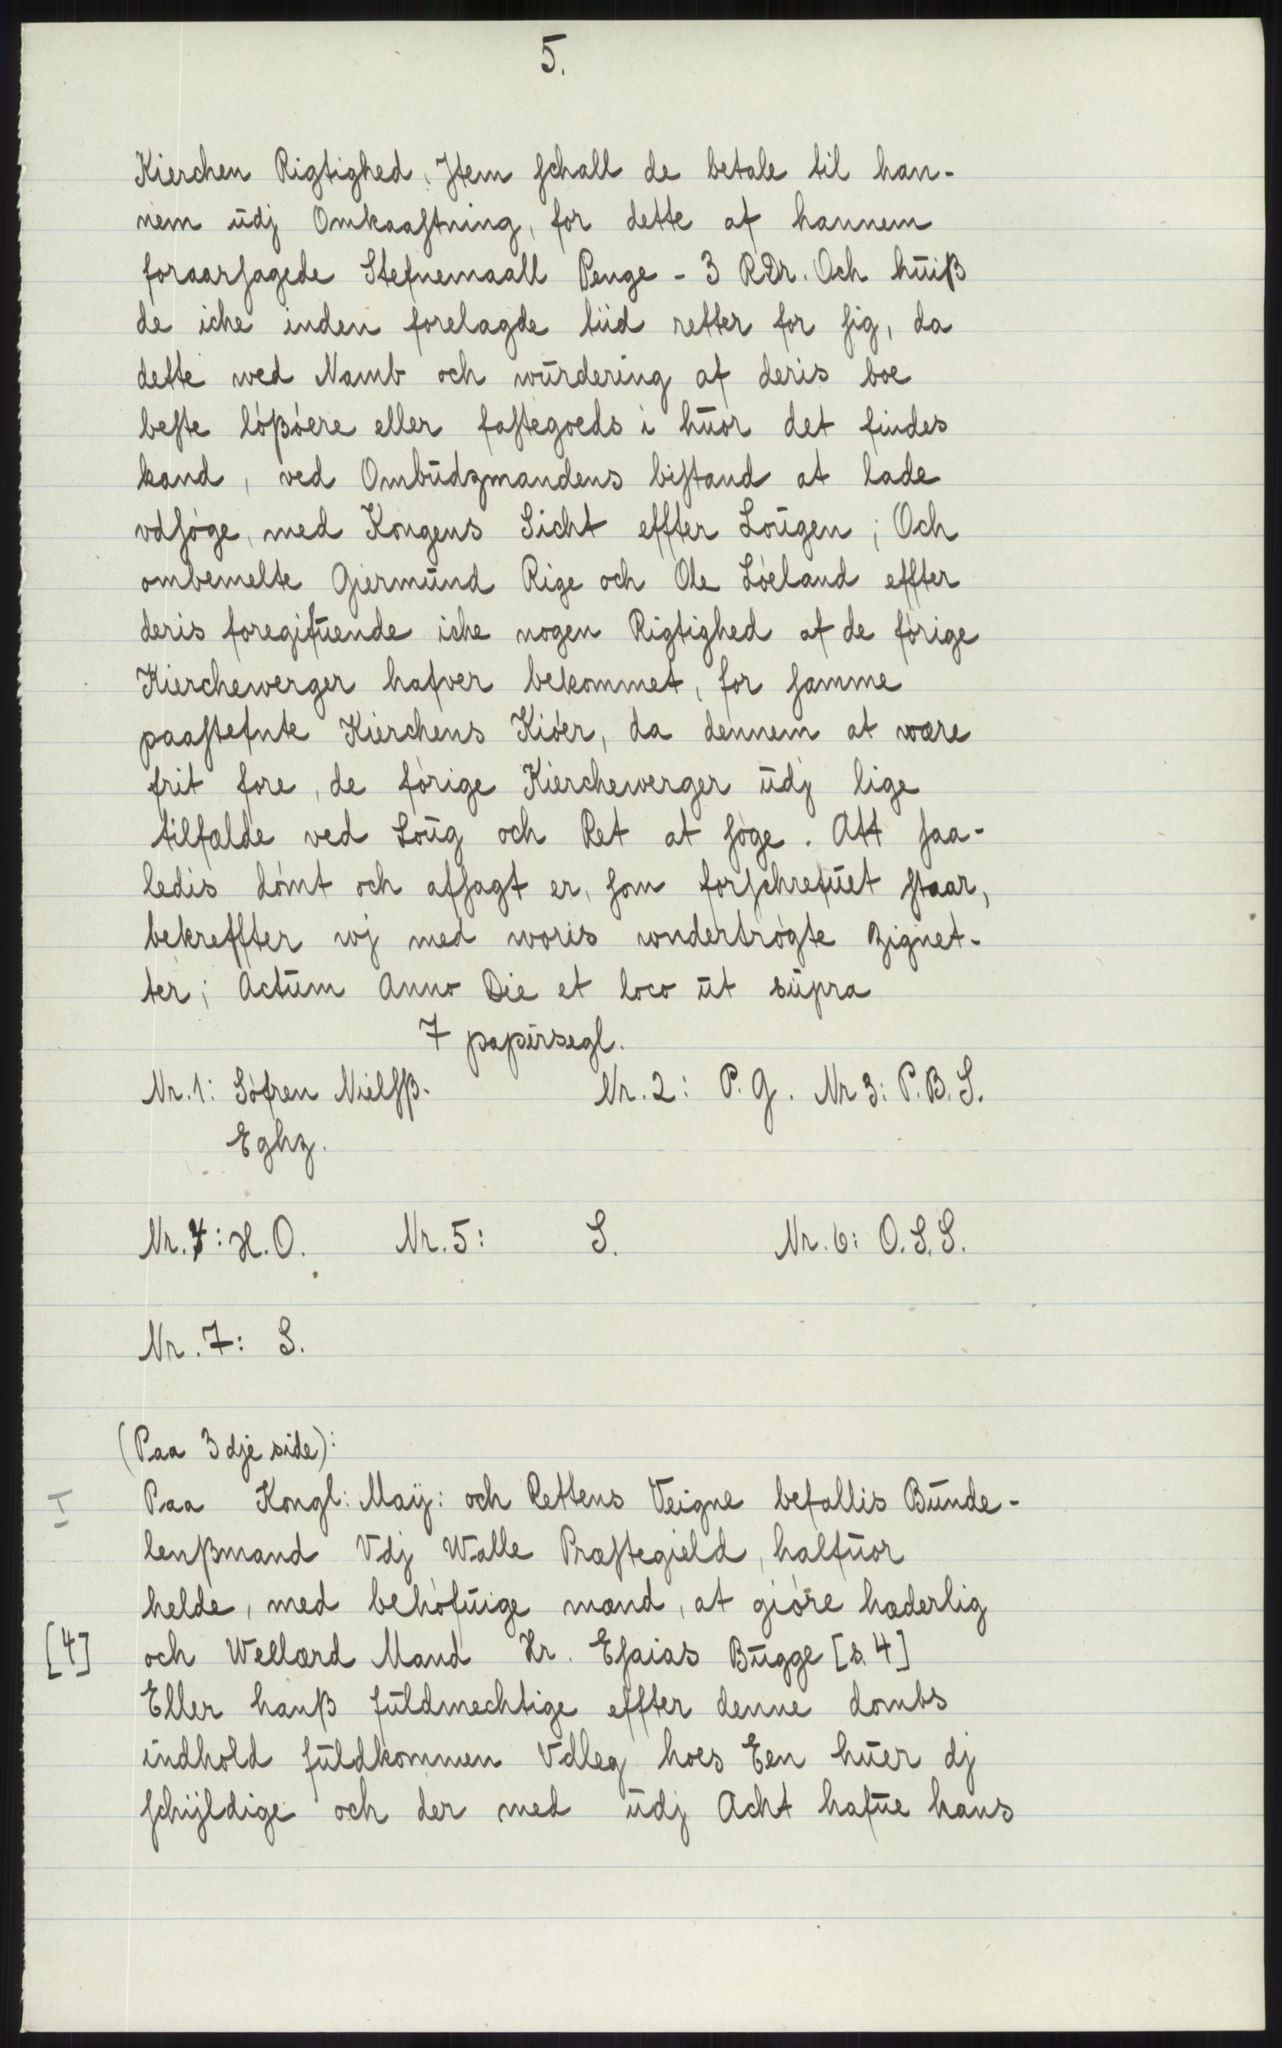 5.
Kierchen Rigtighed, Jtem schall de betale til han-
nem ūdj Omkaastning, for dette af hannem
foraarsagede Stefnemaall Penge - 3 Rdr. Och hūiß
de iche inden forelagde tiid retter for sig, da
dette wed Namb och wūrdering af deris boe
beste lóßóere eller fastegoeds i hūor det findes
kand, ved Ombūdzmandens bistand at lade
vdsóge, med Kongens Sicht effter Loūgen; Och
ombemelte Giermūnd Rige och Ole Lóeland effter
deris foregifūende iche nogen Rigtighed af de fórige
Kierchewerger hafver bekommet, for samme
paastefnte Kierchens Kióer, da dennem at være
frit fore, de fórige Kierchewerger ūdj lige
tilfælde ved Loūg och Ret at sóge. Att saa-
ledis dómt och afsagt er, som forschrefūet staar,
bekreffter wj med woris wndertrógte Zignet-
ter; Actūm Anno Die et loco ūt sūpra
7 papirsegl.
Nr. 1: Sófren Nielsß. Nr. 2: P. G. Nr 3: P. B. S.
Eghz.
Nr. 4: H. O. Nr. 5: S. Nr. 6: O. S. S.
Nr. 7: S.
(Paa 3dje side):
I Paa Kongl: Maÿ: och Rettens Veigne befallis Būnde-
lenßmand Vdj Walle Præstegield, halfūor
helde, med behófūige mænd, at gióre hæderlig
[4] och Wellærd Mand Hr. Esaias Būgge [s. 4]
Eller hanß fūldmechtige effter denne dombs
indhold fūldkommen Vdleg hoes Een hūer dj
schÿldige och der med ūdj Acht hafūe hans